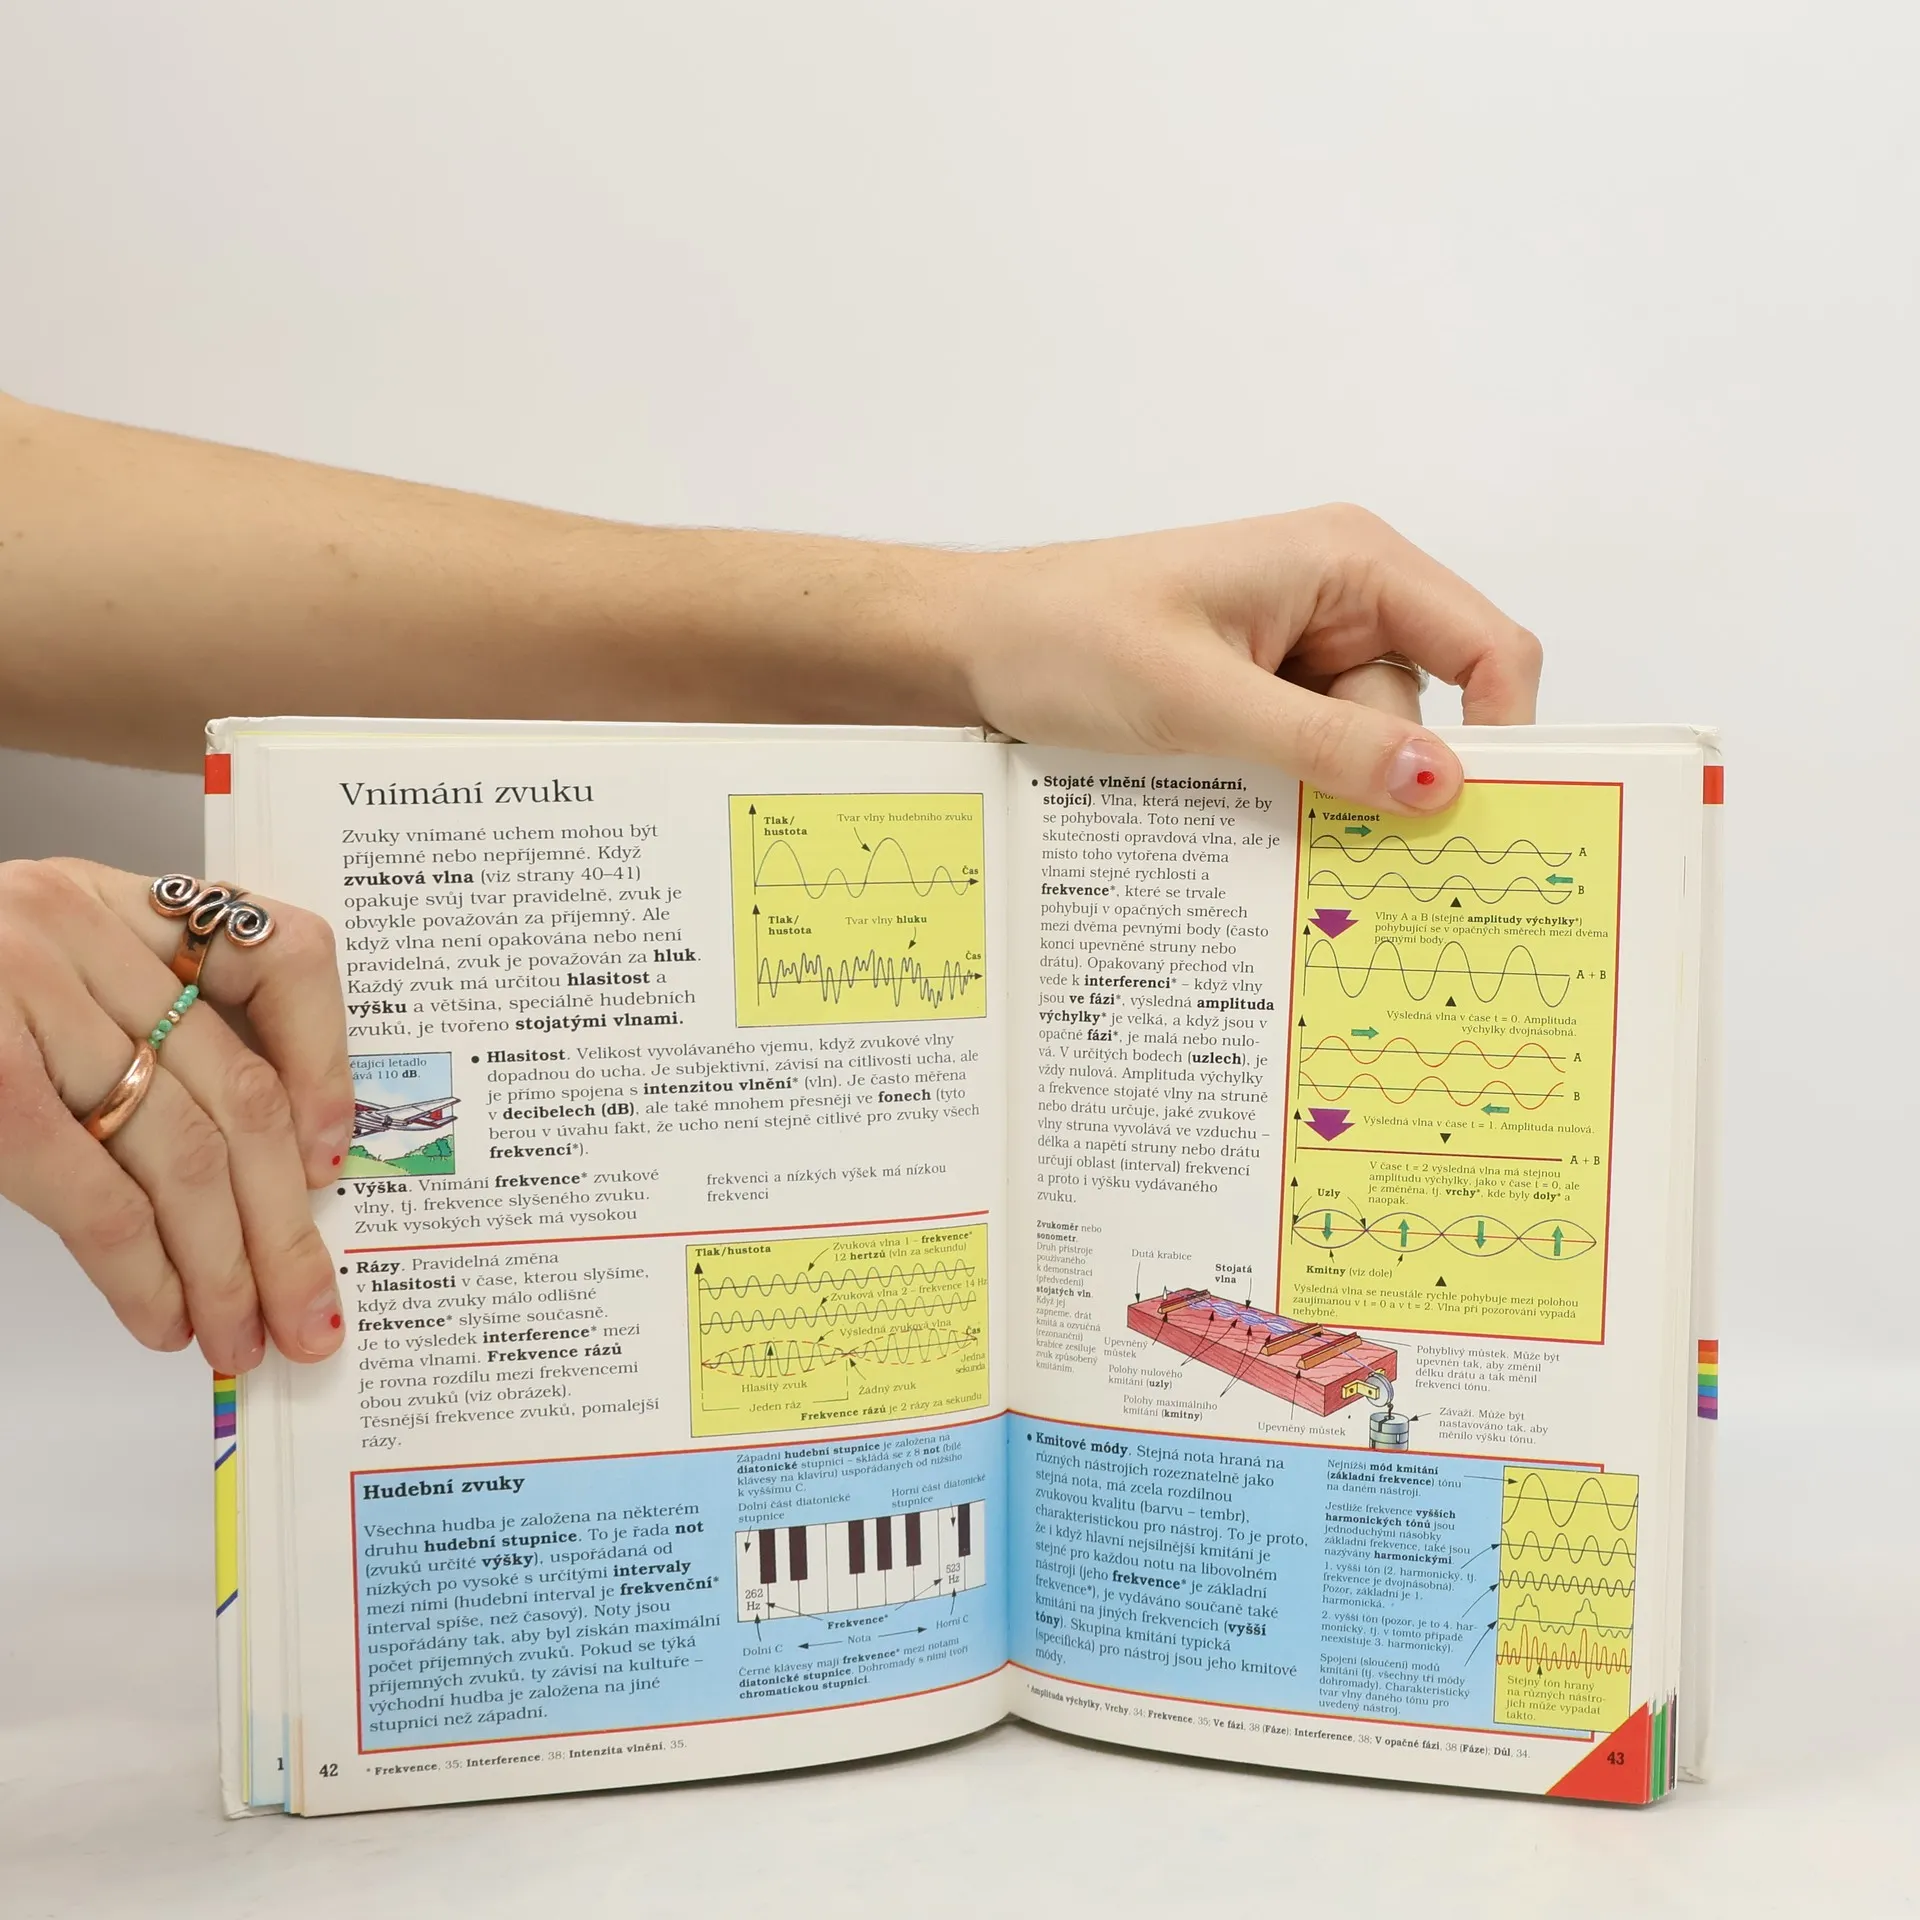 Vnímání zvuku
Zvuky vnímané uchem mohou být
příjemné nebo nepříjemné. Když
zvuková vlna (viz strany 40–41)
opakuje svůj tvar pravidelně, zvuk je
obvykle považován za příjemný. Ale
když vlna není opakována nebo není
pravidelná, zvuk je považován za hluk.
Každý zvuk má určitou hlasitost a
výšku a většina, speciálně hudebních
zvuků, je tvořeno stojatými vlnami.
Tlak/
hustota
Tvar vlny hudebního zvuku
Čas
Tlak/
hustota
Tvar vlny hluku
Čas
letadlo
110 dB.
• Hlasitost. Velikost vyvolávaného vjemu, když zvukové vlny
dopadnou do ucha. Je subjektivní, závisí na citlivosti ucha, ale
je přímo spojena s intenzitou vlnění* (vln). Je často měřena
v decibelech (dB), ale také mnohem přesněji ve fonech (tyto
berou v úvahu fakt, že ucho není stejně citlivé pro zvuky všech
frekvencí*).
• Výška. Vnímání frekvence* zvukové
vlny, tj. frekvence slyšeného zvuku.
Zvuk vysokých výšek má vysokou
frekvenci a nízkých výšek má nízkou
frekvenci
• Rázy. Pravidelná změna
v hlasitosti v čase, kterou slyšíme,
když dva zvuky málo odlišné
frekvence* slyšíme současně.
Je to výsledek interference* mezi
dvěma vlnami. Frekvence rázů
je rovna rozdílu mezi frekvencemi
obou zvuků (viz obrázek).
Těsnější frekvence zvuků, pomalejší
rázy.
Tlak/hustota
Zvuková vlna 1 – frekvence*
12 hertzů (vln za sekundu)
Zvuková vlna 2 – frekvence 14 Hz
Výsledná zvuková vlna
Čas
Jedna
sekunda
Hlasitý zvuk
Žádný zvuk
Jeden ráz
Frekvence rázů je 2 rázy za sekundu
Hudební zvuky
Všechna hudba je založena na některém
druhu hudební stupnice. To je řada not
(zvuků určité výšky), uspořádaná od
nízkých po vysoké s určitými intervaly
mezi nimi (hudební interval je frekvenční*
interval spíše, než časový). Noty jsou
uspořádány tak, aby byl získán maximální
počet příjemných zvuků. Pokud se týká
příjemných zvuků, ty závisí na kultuře –
východní hudba je založena na jiné
stupnici než západní.
Západní hudební stupnice je založena na
diatonické stupnici – skládá se z 8 not (bílé
klávesy na klavíru) uspořádaných od nižšího
k vyššímu C.
Dolní část diatonické
stupnice
Horní část diatonické
stupnice
262
Hz
523
Hz
Frekvence*
Dolní C
Nota
Horní C
Černé klávesy mají frekvence* mezi notami
diatonické stupnice. Dohromady s nimi tvoří
chromatickou stupnici.
1
42
* Frekvence, 35; Interference, 38; Intenzita vlnění, 35.
• Stojaté vlnění (stacionární,
stojící). Vlna, která nejeví, že by
se pohybovala. Toto není ve
skutečnosti opravdová vlna, ale je
místo toho vytořena dvěma
vlnami stejné rychlosti a
frekvence*, které se trvale
pohybují v opačných směrech
mezi dvěma pevnými body (často
konci upevněné struny nebo
drátu). Opakovaný přechod vln
vede k interferenci* – když vlny
jsou ve fázi*, výsledná amplituda
výchylky* je velká, a když jsou v
opačné fázi*, je malá nebo nulo-
vá. V určitých bodech (uzlech), je
vždy nulová. Amplituda výchylky
a frekvence stojaté vlny na struně
nebo drátu určuje, jaké zvukové
vlny struna vyvolává ve vzduchu –
délka a napětí struny nebo drátu
určují oblast (interval) frekvencí
a proto i výšku vydávaného
zvuku.
Vzdálenost
A
B
Vlny A a B (stejné amplitudy výchylky*)
pohybující se v opačných směrech mezi dvěma
pevnými body
A + B
Výsledná vlna v čase t = 0. Amplituda
výchylky dvojnásobná.
A
B
Výsledná vlna v čase t = 1. Amplituda nulová.
A + B
V čase t = 2 výsledná vlna má stejnou
amplitudu výchylky, jako v čase t = 0, ale
je změněna, tj. vrchy*, kde byly doly* a
naopak.
Uzly
Kmitny (viz dole)
Výsledná vlna se neustále rychle pohybuje mezi polohou
zaujímanou v t = 0 a v t = 2. Vlna při pozorování vypadá
nehybně.
Zvukoměr nebo
sonometr.
Druh přístroje
používaného
k demonstraci
(předvedení)
stojatých vln.
Když jej
zapneme, drát
kmitá a ozvučná
(rezonanční)
krabice zesiluje
zvuk způsobený
kmitáním.
Dutá krabice
Stojatá
vlna
Upevněný
můstek
Polohy nulového
kmitání (uzly)
Polohy maximálního
kmitání (kmitny)
Upevněný můstek
Pohyblivý můstek. Může být
upevněn tak, aby změnil
délku drátu a tak měnil
frekvenci tónu.
Závaží. Může být
nastavováno tak, aby
měnilo výšku tónu.
• Kmitové módy. Stejná nota hraná na
různých nástrojích rozeznatelně jako
stejná nota, má zcela rozdílnou
zvukovou kvalitu (barvu – tembr),
charakteristickou pro nástroj. To je proto,
že i když hlavní nejsilnější kmitání je
stejné pro každou notu na libovolném
nástroji (jeho frekvence* je základní
frekvence*), je vydáváno součaně také
kmitání na jiných frekvencích (vyšší
tóny). Skupina kmitání typická
(specifická) pro nástroj jsou jeho kmitové
módy.
Nejnižší mód kmitání
(základní frekvence) tónu
na daném nástroji.
Jestliže frekvence vyšších
harmonických tónů jsou
jednoduchými násobky
základní frekvence, také jsou
nazývány harmonickými.
1. vyšší tón (2. harmonický, tj.
frekvence je dvojnásobná).
Pozor, základní je 1.
harmonická.
2. vyšší tón (pozor, je to 4. har-
monický, tj. v tomto případě
neexistuje 3. harmonický).
Spojení (sloučení) modů
kmitání (tj. všechny tři módy
dohromady). Charakteristický
tvar vlny daného tónu pro
uvedený nástroj.
Stejný tón hraný
na různých nástro-
jích může vypadat
takto.
* Amplituda výchylky, Vrchy, 34; Frekvence, 35; Ve fázi, 38 (Fáze); Interference, 38; V opačné fázi, 38 (Fáze); Důl, 34.
43